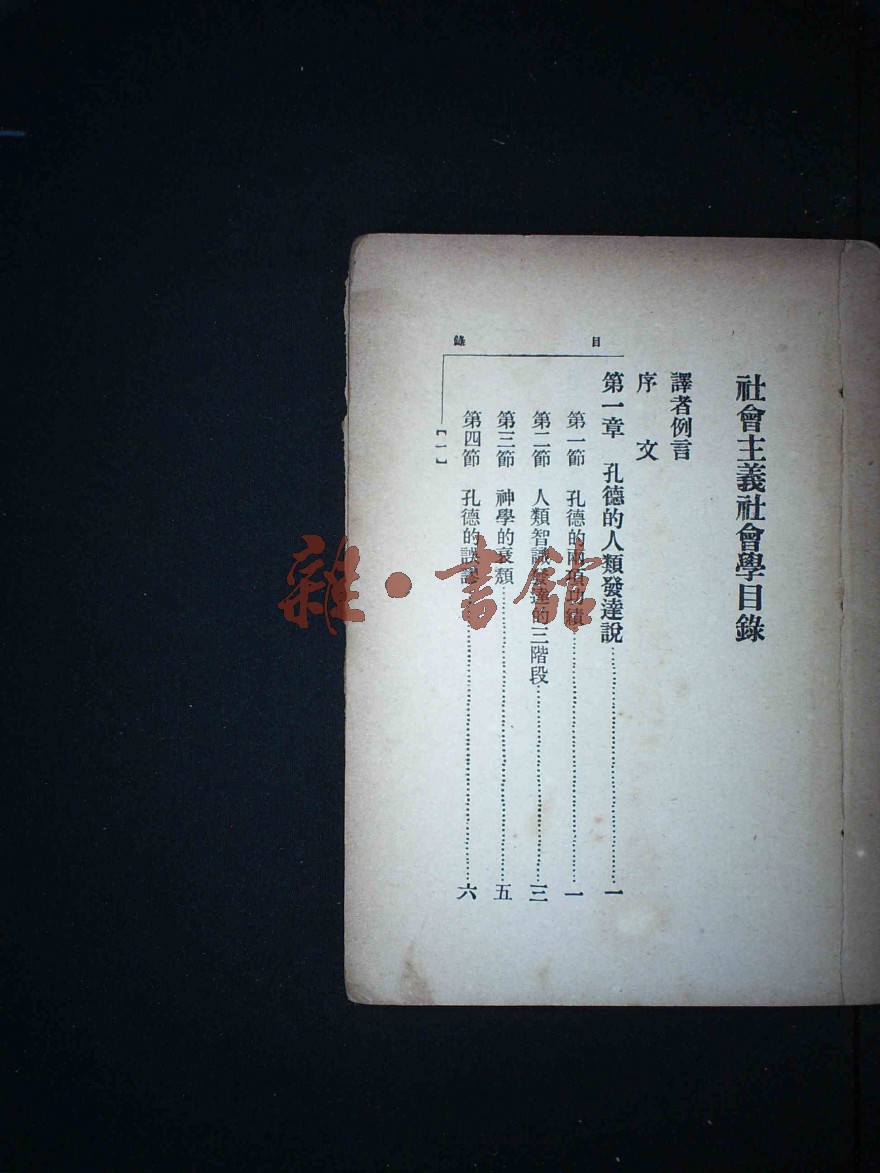 社會主義社會學目錄
譯者例言
序文
第一章 孔德的人類發達說……一
第一節 孔德的兩項功績……一
第二節 人類智識發達的三階段……三
第三節 神學的衰頹……五
第四節 孔德的誤謬……六
目錄
【一】
雜·書館